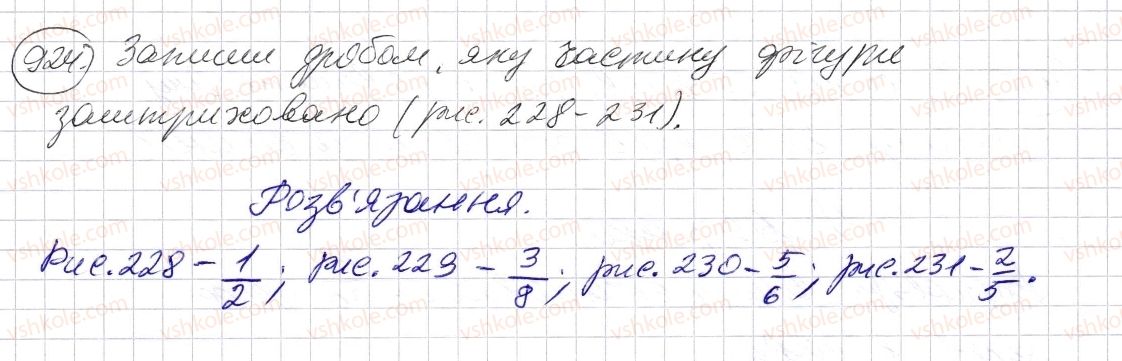 924) Запиши дробом, яку частину фігури
заштриховано (рис. 228-231).
Розв'язання.
Рис. 228 - 1/2; рис. 229 - 3/8; рис. 230 - 5/6; рис. 231 - 2/5.